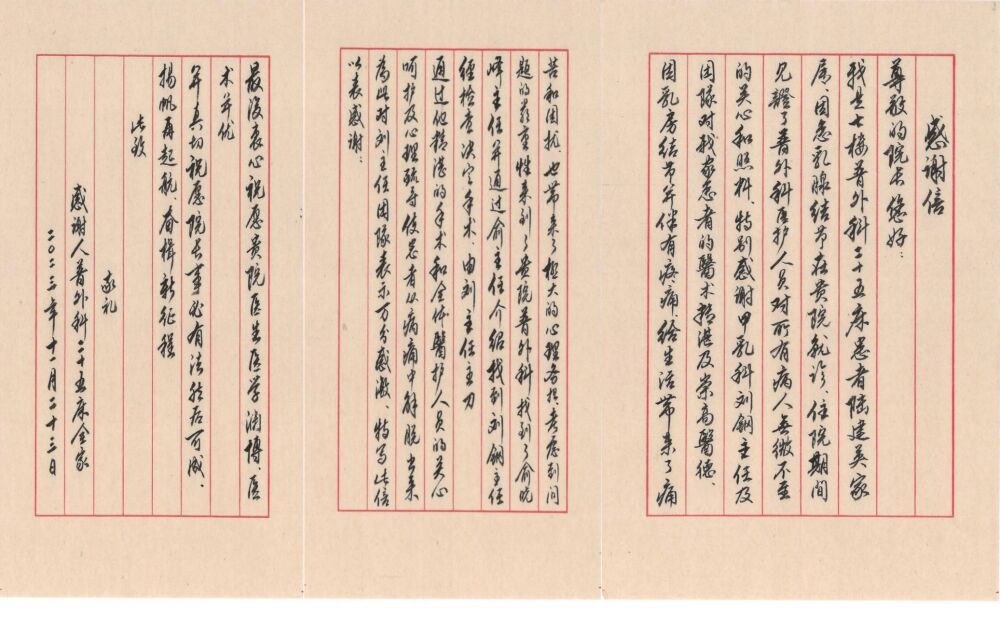 感谢信
尊敬的院长您好：
我是七楼普外科二十五床患者陆建英家
属、因患乳腺结节在贵院就诊、住院期间
见證了普外科医护人员对所有病人無微不至
的关心和照料、特别感谢甲乳科刘钢主任及
团隊对我家患者的醫术精湛及崇高醫德、
因乳房结节并伴有疼痛、给生活带来了痛
苦和困扰、也带来了極大的心理负担、考虑到问
题的嚴重性来到了贵院普外科、找到了俞晓
峰主任并通过俞主任介绍找到刘钢主任
經检查决定手术、由刘主任主刀
通过他精湛的手术和全体醫护人员的关心
呵护及心理疏导使患者从病痛中解脱出来
為此对刘主任团隊表示万分感激、特写此信
以表感谢：
最後衷心祝愿贵院医生医学渊博、医
术并优
并真切祝愿院长事必有法然后可成、
扬帆再起航、奋楫新征程
此致
敬礼
感谢人普外科二十五床全家
二〇二三年十二月二十三日